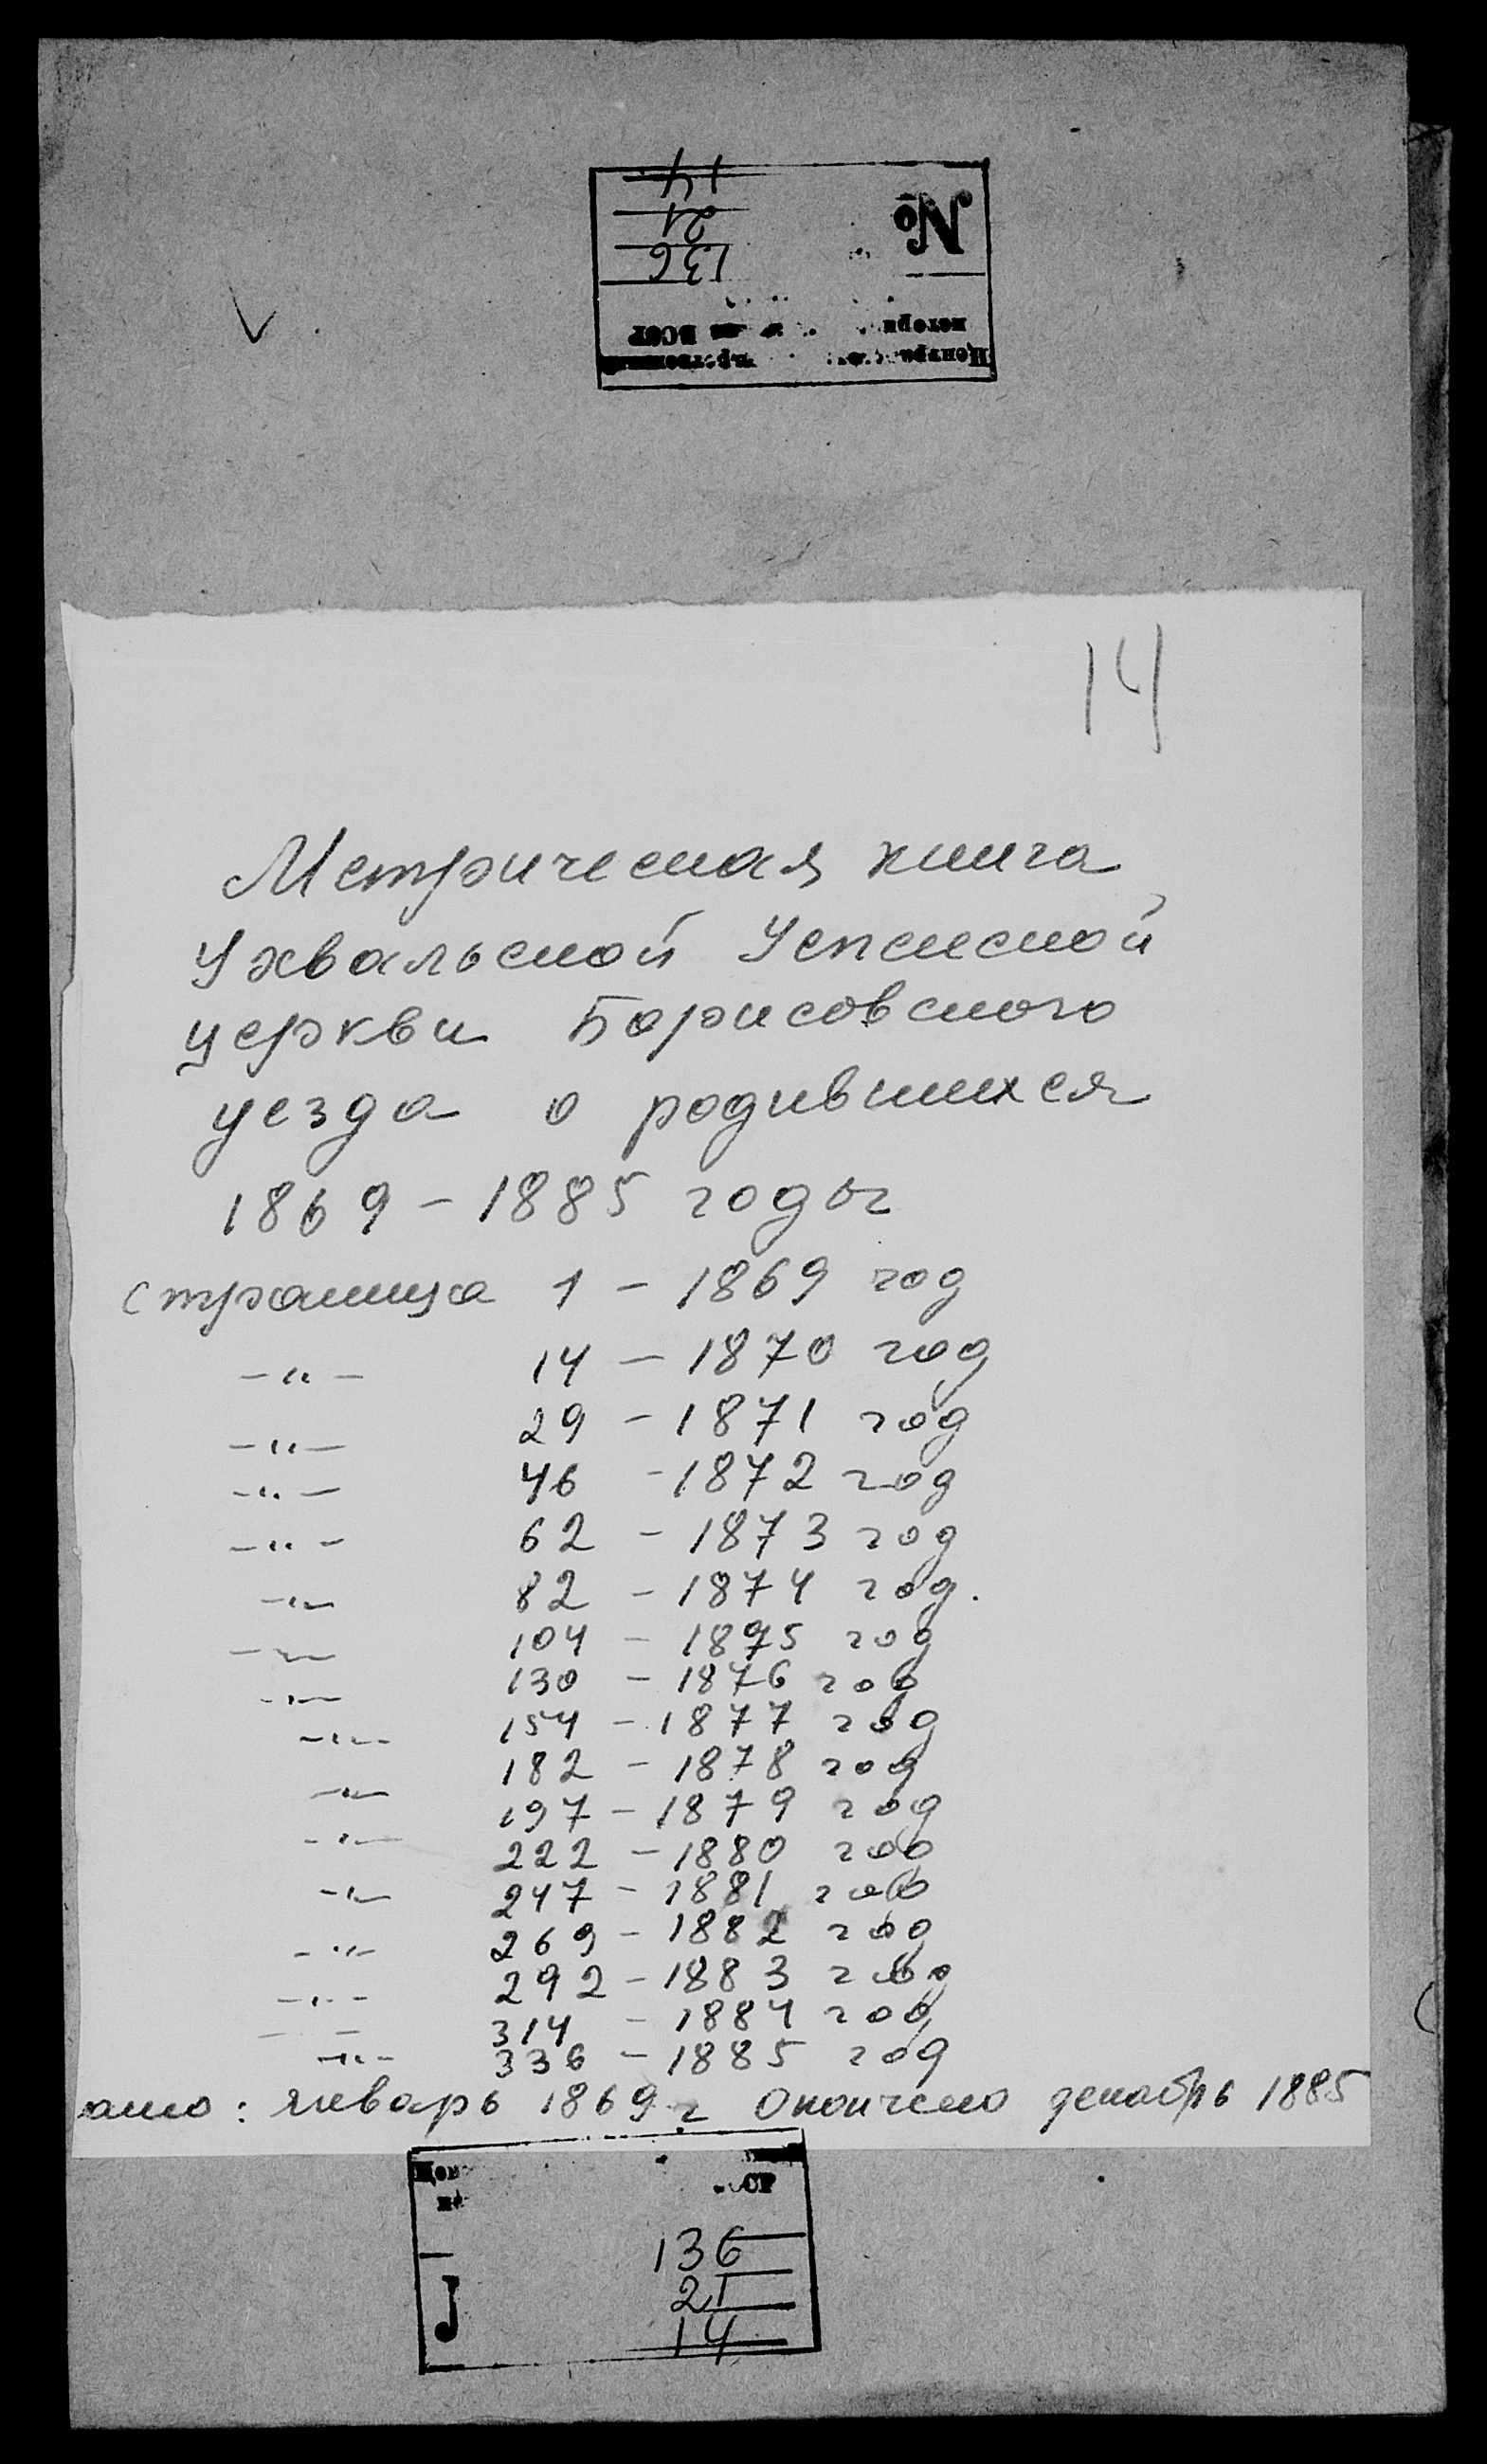 14
21
136
№
БССР
14
Метрическая книга
Ухвальской Успенской
церкви Борисовского
уезда о родившихся
1869 - 1885 годы
страница 1 - 1869 год
-"- 14 - 1870 год
-"- 29 - 1871 год
-"- 46 - 1872 год
-"- 62 - 1873 год
-"- 82 - 1874 год.
-"- 104 - 1875 год
-"- 130 - 1876 год
-"- 154 - 1877 год
-"- 182 - 1878 год
-"- 197 - 1879 год
-"- 222 - 1880 год
-"- 247 - 1881 год
-"- 269 - 1882 год
-"- 292 - 1883 год
- - 314 - 1884 год
-"- 336 - 1885 год
ано: январь 1869 г Окончено декабрь 1885
136
21
14